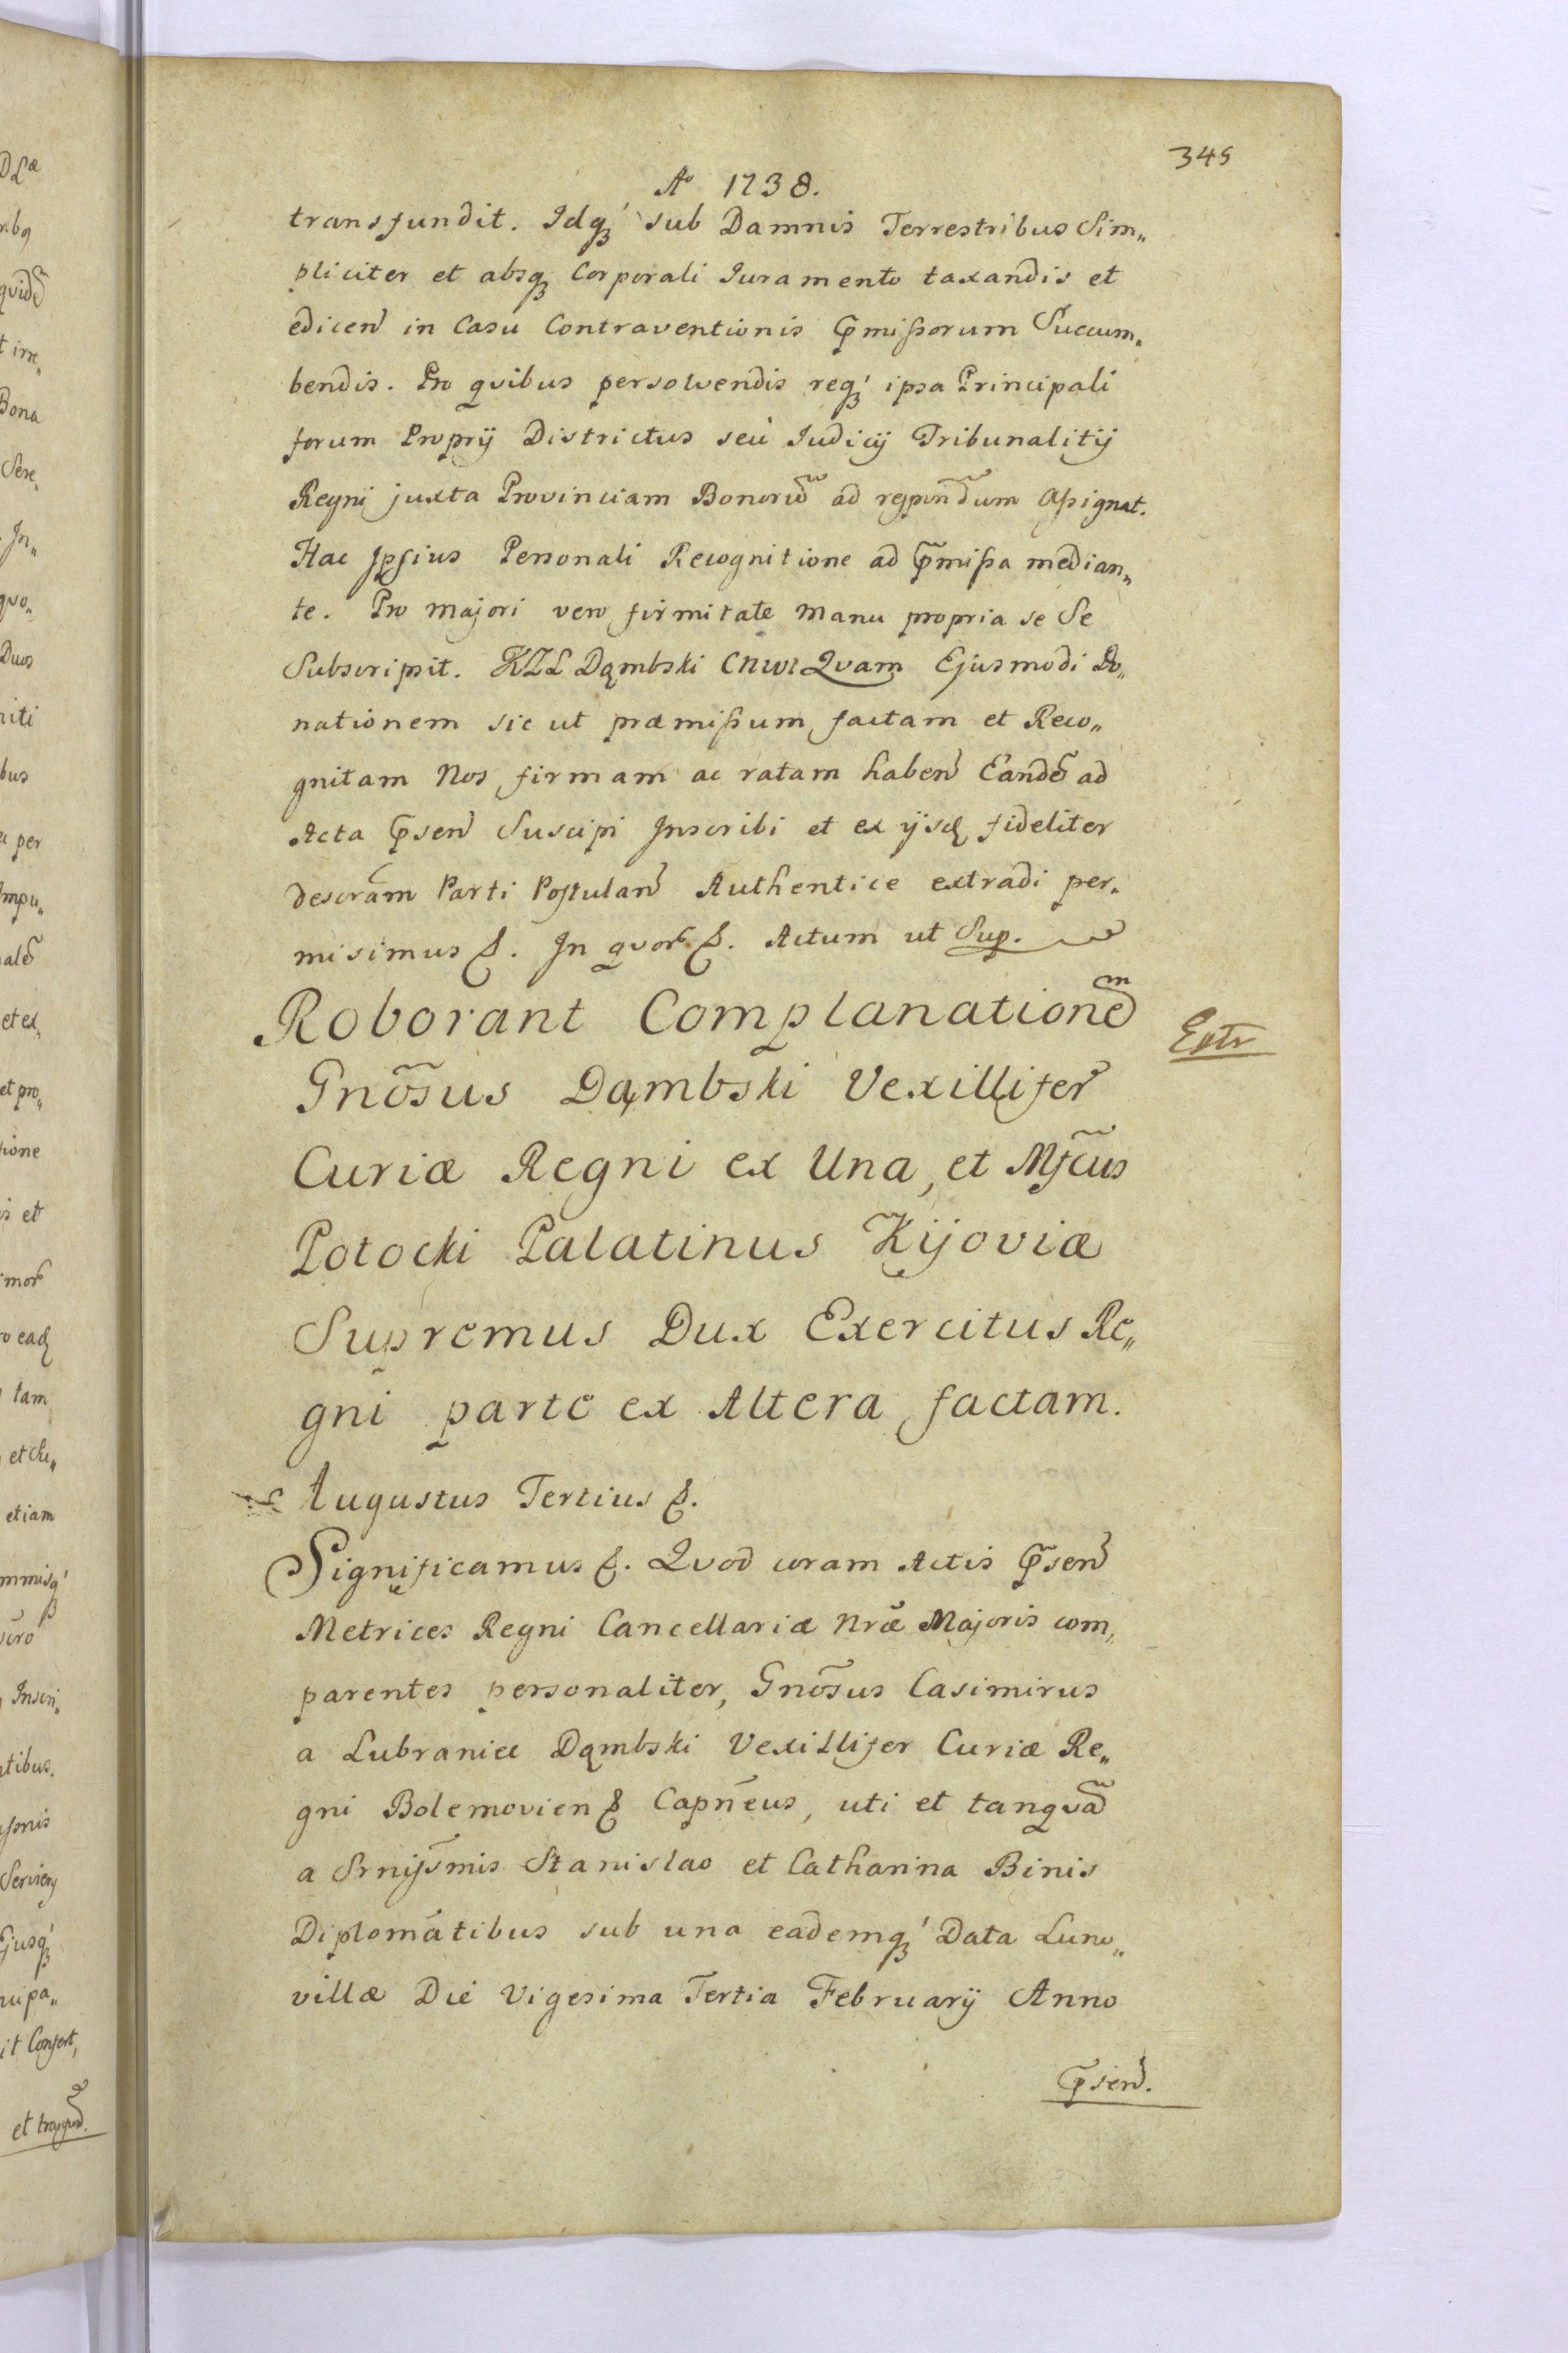 345
Aº 1738.
transfundit. Idq́ sub Damnis Terrestribus Sim„
pliciter et absq Corporali Iuramento taxandis et
edicen̄ in Casu Contraventionis p̃mißorum Succum„
bendis. Pro qvibus persolvendis req́ ipsa Principali
forum Proprij Districtus seu Iudicij Tribunalitij
Regni juxta Provinciam Bonorũ ad respon̄dum Aßignat.
Hac Ipsius Personali Recognitione ad p̃mißa median„
te. Pro majori vero firmitate Manu propria se Se
Subscripsit. KZL Dąmbski Qvam Ejusmodi Do„
nationem sic ut præmißum factam et Reco„
gnitam Nos firmam ac ratam haben̄ Eandẽ ad
Acta p̃sen̄ Suscipi Inscribi et ex ijsd fideliter
descrãm Parti Postulan̄ Authentice extradi per„
misimus &. In qvor̃ &. Actum ut Sup.
Roborant Complanationem
Gnõsus Dąmbski Vexillifer
Curiæ Regni ex Una, et Mfc̃us
Potocki Palatinus Kijoviæ
Supremus Dux Exercitus Re„
gni parte ex Altera factam.
Extr
Augustus Tertius &.
Significamus &. Qvod coram Actis p̃sen̄
Metrices Regni Cancellariæ Nræ̃ Majoris com„
parentes personaliter, Gnõsus Casimirus
a Lubraniec Dąmbski Vexillifer Curiæ Re„
gni Bolemovien & Capñeus, uti et tanqvã
a Srnijs̃mis Stanislao et Catharina Binis
Diplomatibus sub una eademq́ Data Luno„
villæ Die Vigesima Tertia Februarij Anno
p̃sen̄.